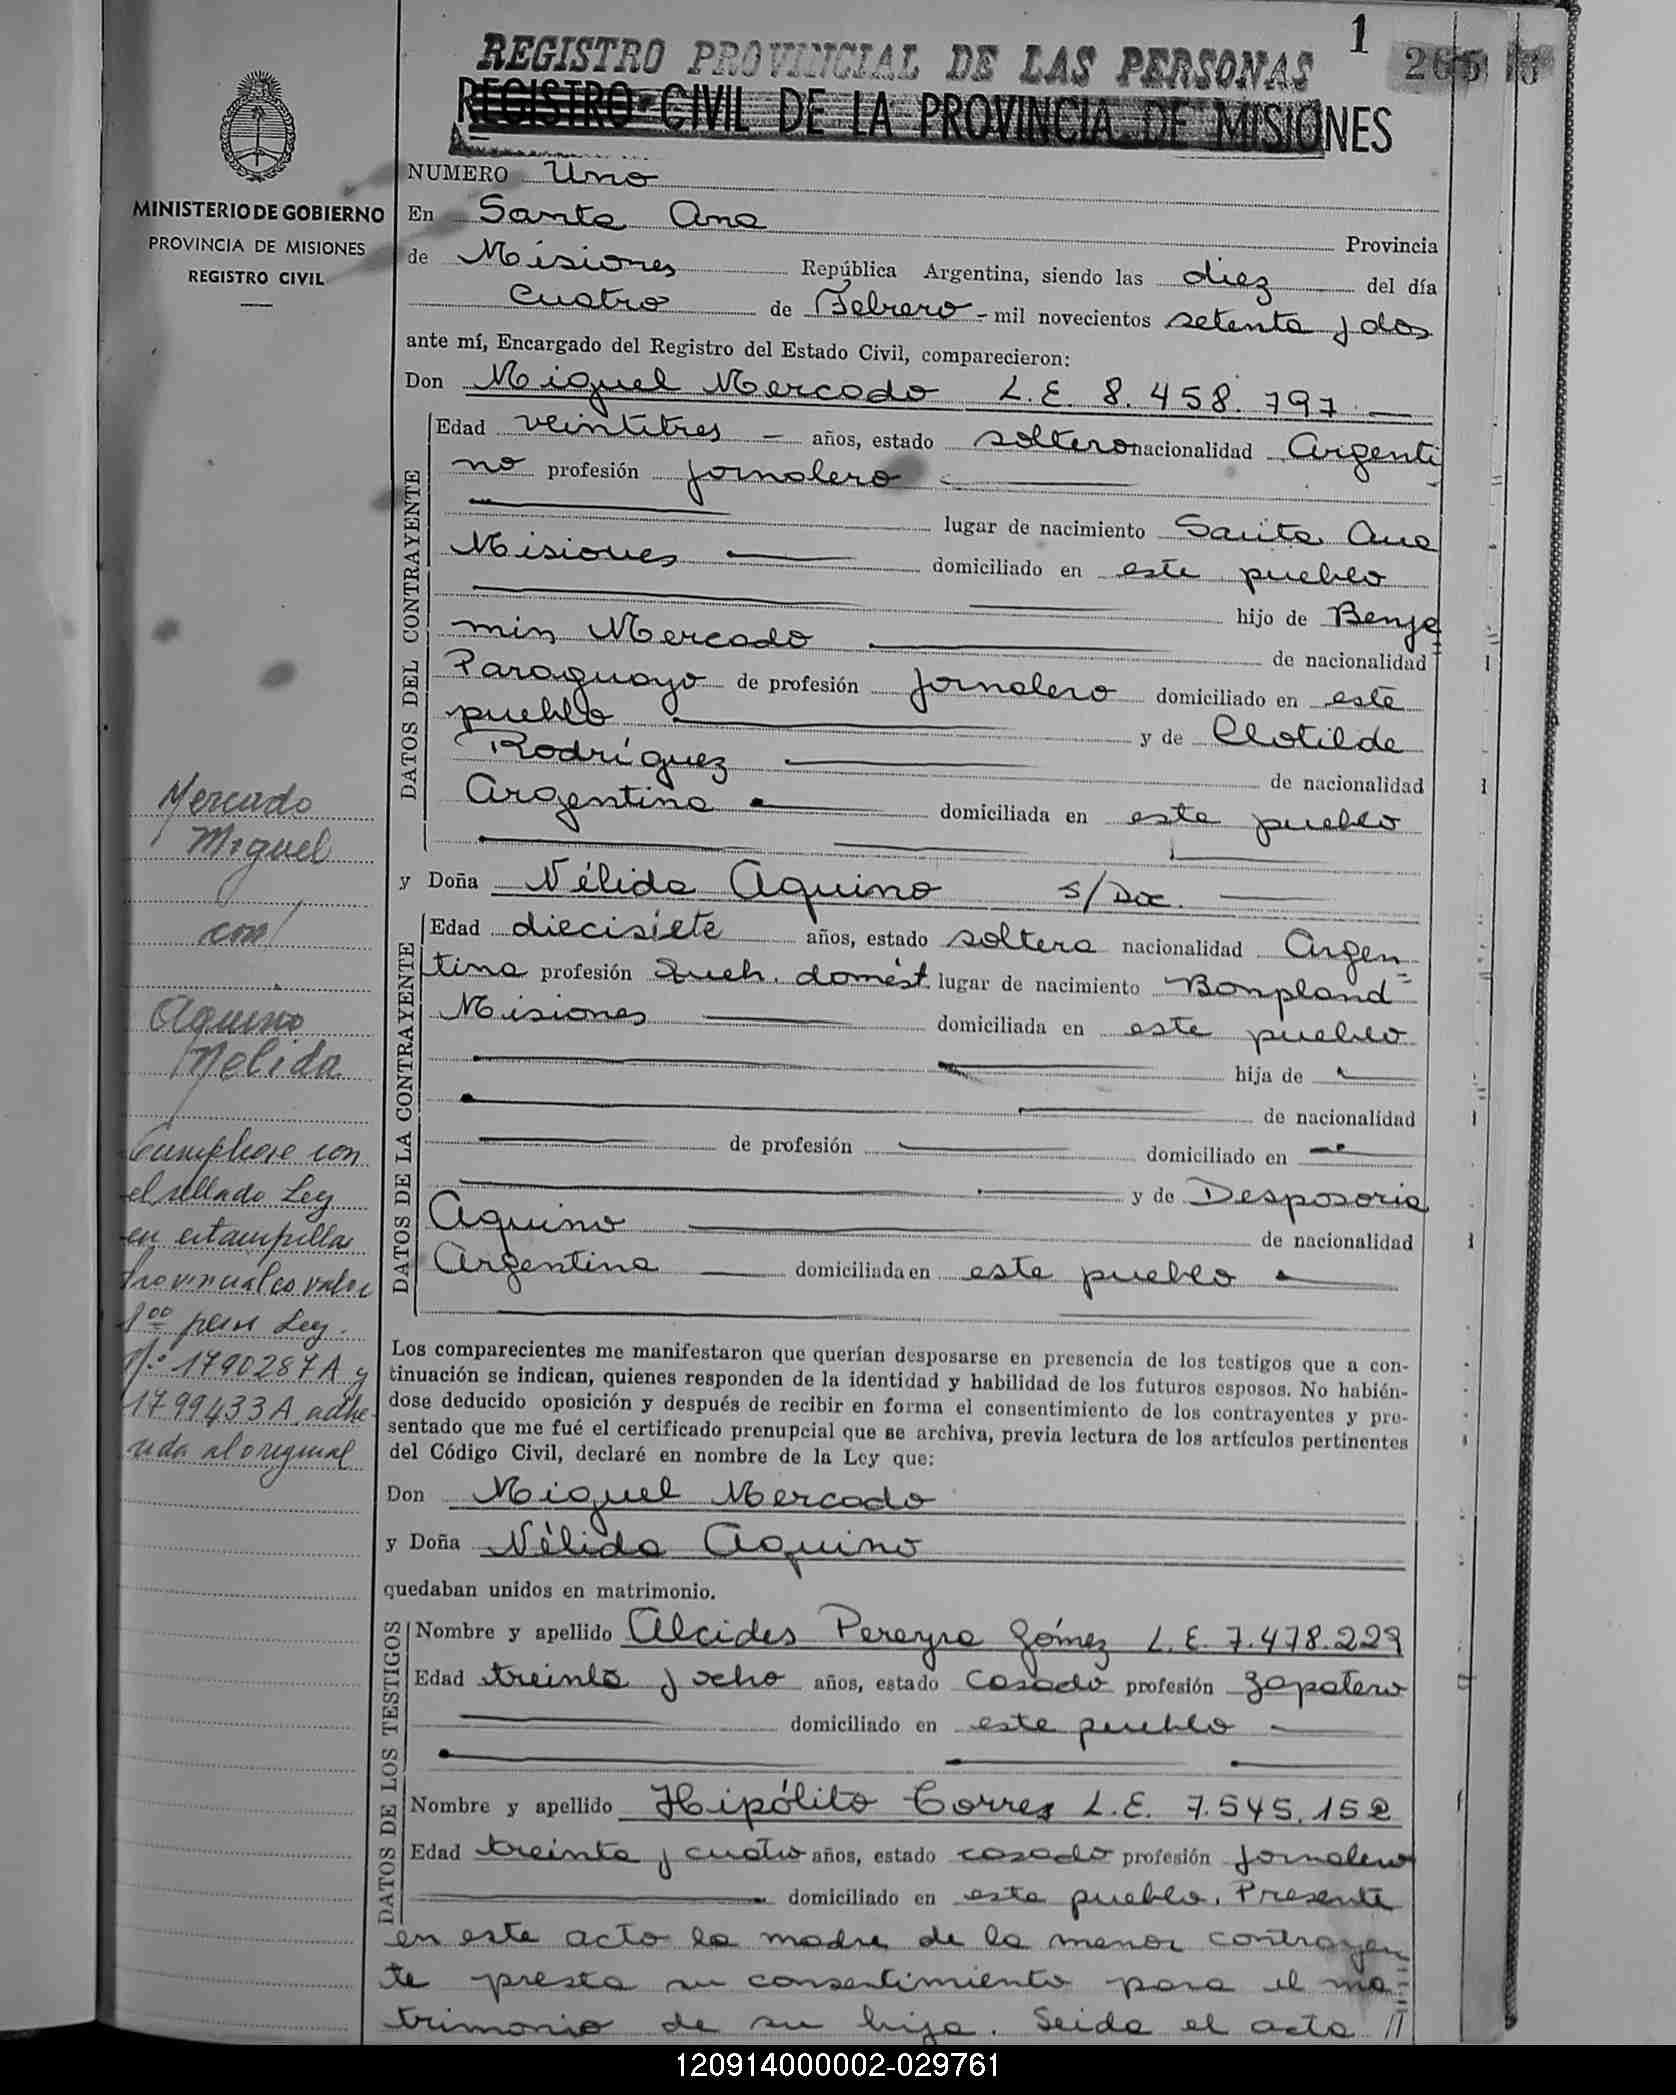 1
REGISTRO PROVINCIAL DE LAS PERSONAS
REGISTRO CIVIL DE LA PROVINCIA DE MISIONES
MINISTERIO DE GOBIERNO
PROVINCIA DE MISIONES
REGISTRO CIVIL
NUMERO Uno
En Santa Ana Provincia
de Misiones República Argentina, siendo las diez del día
cuatro de Febrero - mil novecientos setenta y dos
ante mí, Encargado del Registro del Estado Civil, comparecieron:
Don Miguel Mercado L.E. 8.458.797 —
DATOS DEL CONTRAYENTE
Edad veintitres — años, estado soltero nacionalidad Argenti
no profesión jornalero —
lugar de nacimiento Santa Ana
Misiones — domiciliado en este pueblo
hijo de Benja
min Mercado — de nacionalidad
Paraguayo de profesión jornalero domiciliado en este
pueblo — y de Clotilde
Rodríguez — de nacionalidad
Argentina — domiciliada en este pueblo
y Doña Nélida Aquino s/Doc. —
DATOS DE LA CONTRAYENTE
Edad diecisiete años, estado soltera nacionalidad Argen-
tina profesión Queh. domést. lugar de nacimiento Bonpland
Misiones — domiciliada en este pueblo
hija de —
— de nacionalidad
— de profesión — domiciliado en —
— y de Desposoria
Aquino — de nacionalidad
Argentina — domiciliada en este pueblo —
Los comparecientes me manifestaron que querían desposarse en presencia de los testigos que a con-
tinuación se indican, quienes responden de la identidad y habilidad de los futuros esposos. No habién-
dose deducido oposición y después de recibir en forma el consentimiento de los contrayentes y pre-
sentado que me fué el certificado prenupcial que se archiva, previa lectura de los artículos pertinentes
del Código Civil, declaré en nombre de la Ley que:
Don Miguel Mercado
y Doña Nélida Aquino
quedaban unidos en matrimonio.
DATOS DE LOS TESTIGOS
Nombre y apellido Alcides Pereyra Gómez L.E. 7.478.229
Edad treinta y ocho años, estado casado profesión zapatero
— domiciliado en este pueblo —
Nombre y apellido Hipólito Torres L.E. 7.545.152
Edad treinta y cuatro años, estado casado profesión jornalero
— domiciliado en este pueblo. Presente
en este acto la madre de la menor contrayen
te presta su consentimiento para el ma-
trimonio de su hija. Leida el acta //
Mercado
Miguel
con/
Aquino
Nelida
con
el sellado Ley
en estampilla
provinciales valor
8oo pesos Ley.
N.° 1790287A y
1799433A adhe
rida al original
120914000002-029761